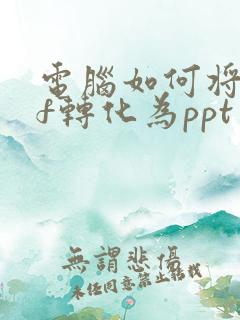 電腦如何将
f轉化為ppt
無謂悲傷
未经同意禁止轉載